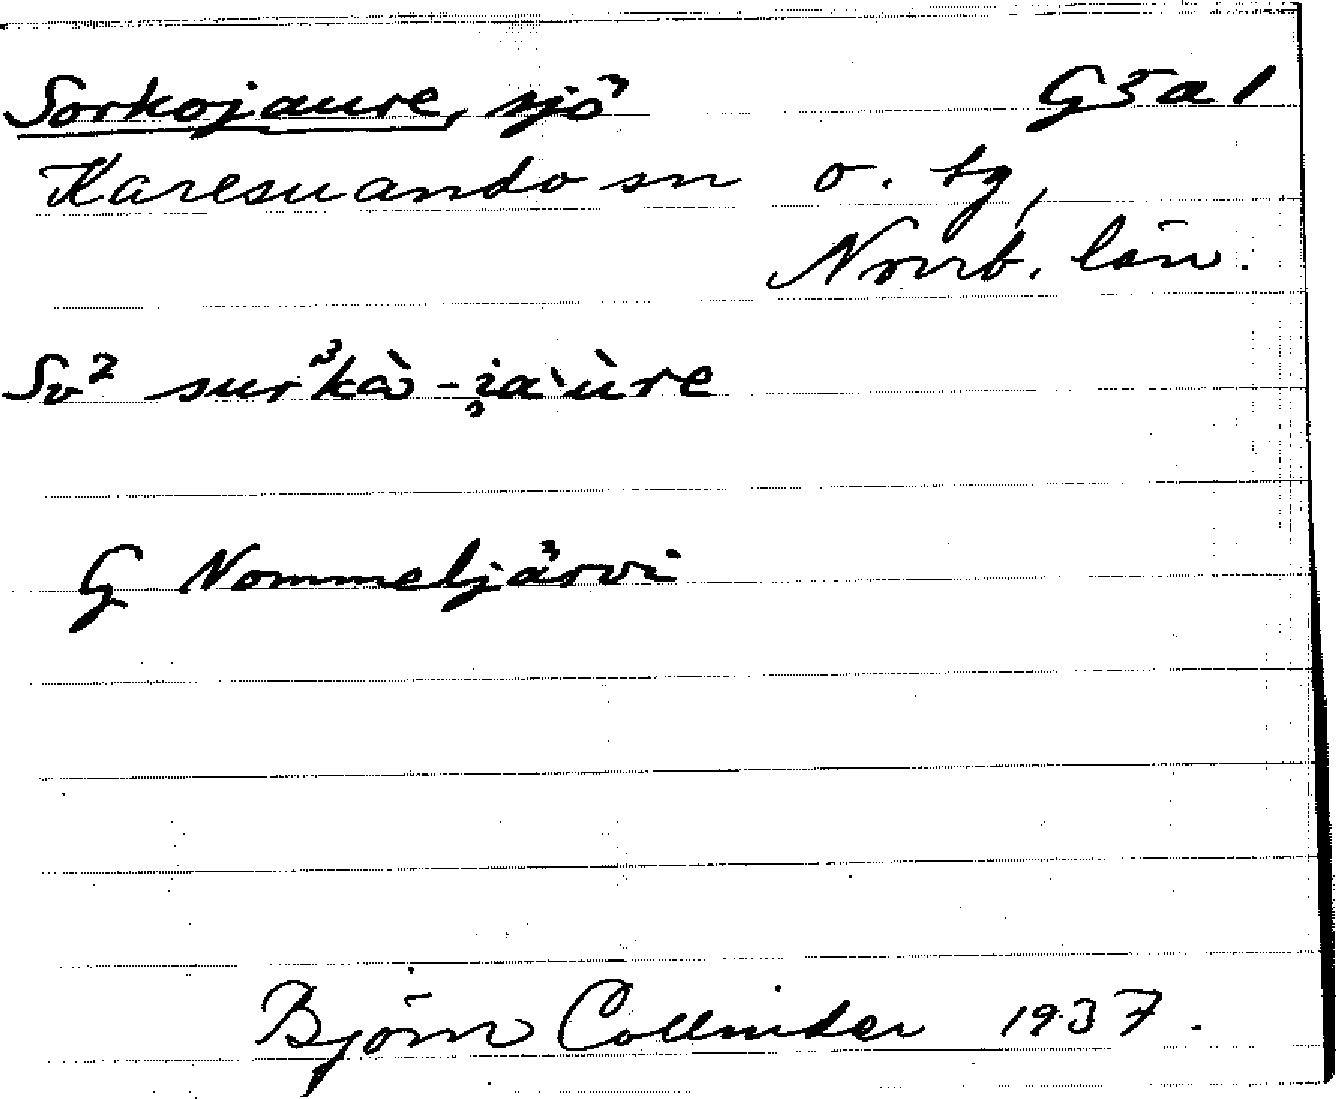 Sorkojaure, sjö G5a1
Karesuando sn o. tg,
Norrb. län.
Sv² sur³kà-i̯a`ùre
G Nommeljärvi
Björn Collinder 1937.